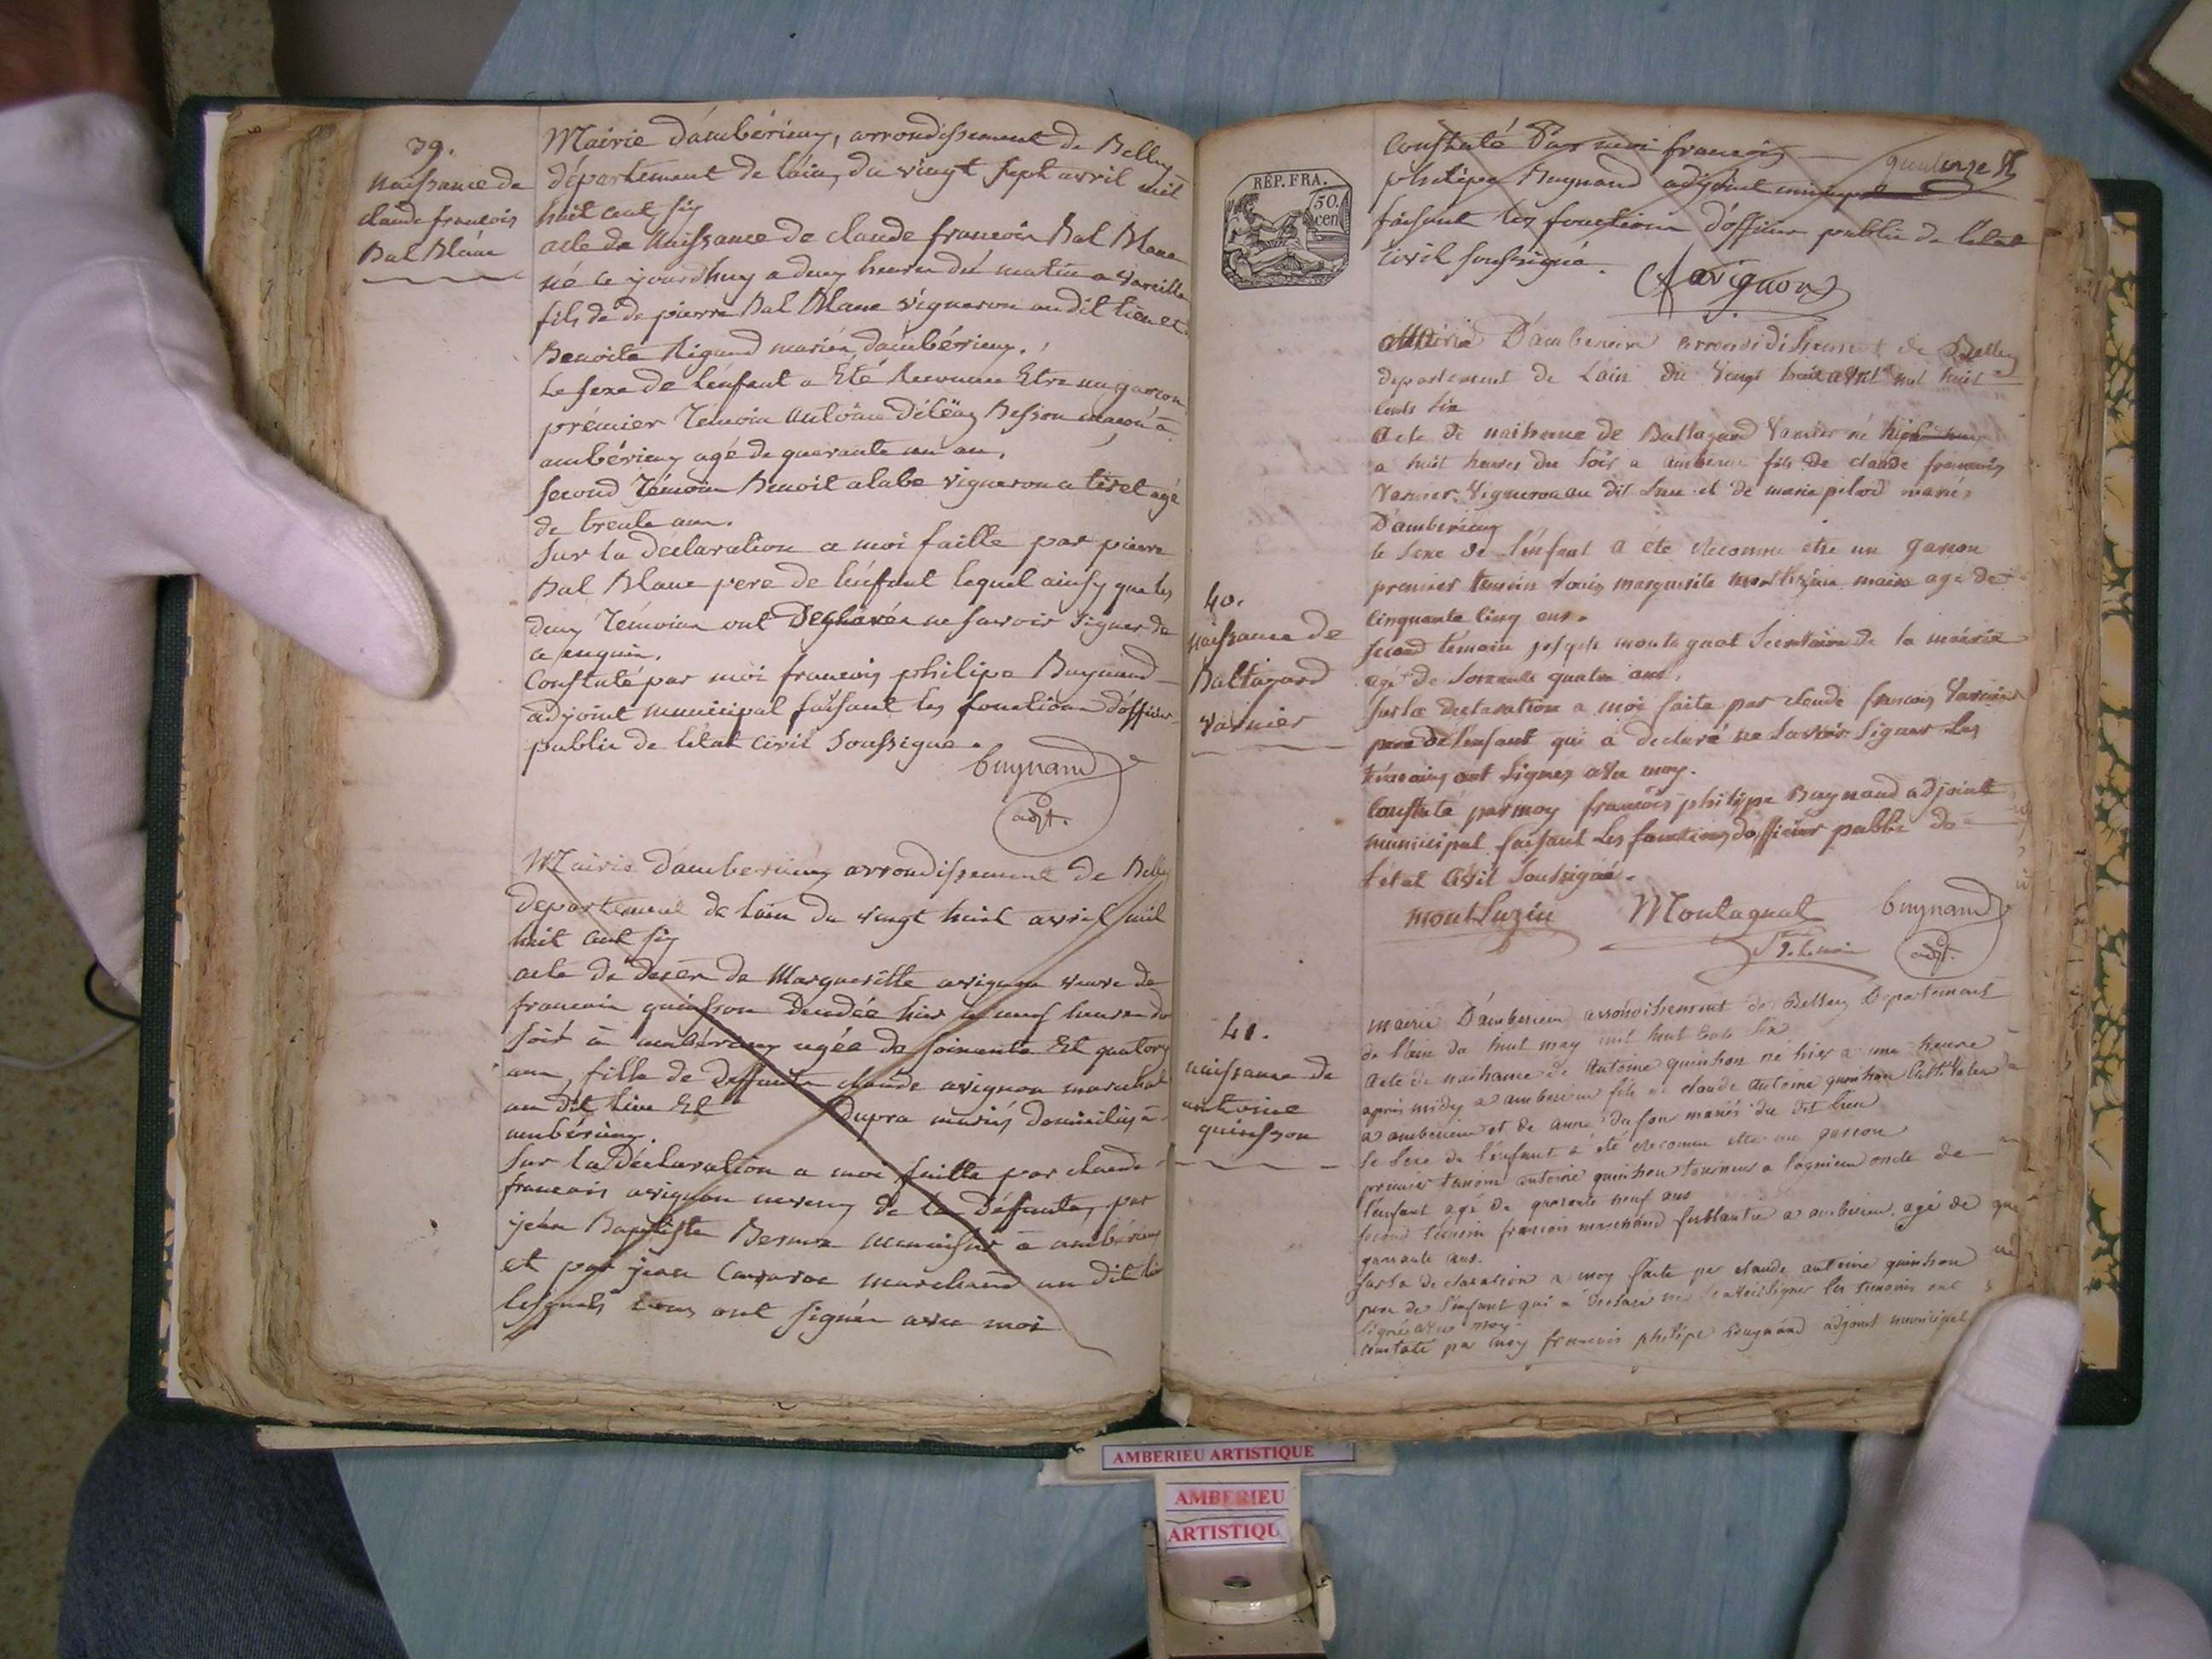 39.
Naissance de
claude francois
Bal Blanc
Mairie d'ambérieux, arrondissement de Belley
département de lain, du vingt sept avril mil
huit cent six
acte de Naissance de claude francois Bal Blanc
né ce jourdhuy a deux heures du matin a Vareille
fils de de pierre Bal Blanc vigneron au dit lieu et
Benoite Rigaud mariés d'ambérieux.
Le sexe de l'enfant a Eté Reconnu Etre un garcon
prémier Témoin antoine Besson macon à
ambérieux agé de quarante un an,
second Témoin Benoit alabe vigneron a tiret agé
de trente ans.
sur la déclaration a moi faitte par pierre
Bal Blanc pere de l'enfant lequel ainsy que les
deux Témoins ont Déclarés ne savoir signer de
ce enquis.
Constaté par moi francois philipe Buynand
adjoint municipal faisant les fonctions d'officier
public de l'état civil soussigné.
buynand
adjt.
Mairie d'amberieux arrondissement de Belley
département de lain du vingt huit avril mil
huit cent six
acte de decès de Margueritte avignon veuve de
francois quinsson décédée hier a neuf heures du
soir à ambérieux agée de soixante Et quatorze
ans, fille de deffunts claude avignon marechal
au dit lieu Et Dupra mariés domiciliés à
ambérieux.
sur la déclaration a moi faitte par claude
francois avignon neveux de la défunte, par
jean Baptiste menuisier à ambérieux
et par jean marchand au dit lieu
lesquels tous ont signés avec moi
REP. FRA.
50.
cen
Constaté Par moi francois
quatorze
philipe Buynand adjoint municipal
faisant les fonctions d'officier public de l'état
civil soussigné.
avignon
40.
naissance de
Baltazard
Varnier
Mairie D'amberieu arrondissement de Belley
departement de Lain du vingt huit avril mil huit
cents six
Acte de naissance de Baltazard Varnier né hier
a huit heures du soir a amberieu fils de claude francois
Varnier Vigneron au dit Lieu et de marie pelod mariés
D'amberieux
le sexe de l'enfant a été Reconnu etre un garson
premier temoin Louis marguerite montluzin maire agé de
cinquante cinq ans.
second temoin joseph montagnat Secretaire de la mairie
agé de soixante quatre ans.
sur la declaration a moi faite par claude francois Varnier
pere de l'enfant qui a declaré ne savoir signer les
témoins ont signés avec moy.
Constaté par moy francois philipe Buynand adjoint
municipal faisant les fonctions d'officier public de
l'état civil soussigné.
montluzin Montagnat buynand
adjt.
41.
naissance de
antoine
quinsson
mairie D'amberieu arrondissement de Belley Departement
de l'ain du huit may mil huit cents six
Acte de naissance de Antoine quinsson né hier a une heure
après midy a amberieu fils de claude antoine quinson Cultivateur
a amberieu et de anne Dufour mariés du dit lieu
Le sexe de l'enfant a été Reconnu etre un garson
premier temoin antoine quinson tourneur a lagnieu oncle de
l'enfant agé de quarante neuf ans
second temoin francois marchand ferblantier a amberieu agé de
quarante ans.
sur la declaration a moy faite par claude antoine quinson
pere de l'enfant qui a declaré ne savoir signer les temoins ont
signé avec moy.
constaté par moy francois philipe Buynand adjoint municipal
AMBERIEU ARTISTIQUE
AMBERIEU
ARTISTIQU